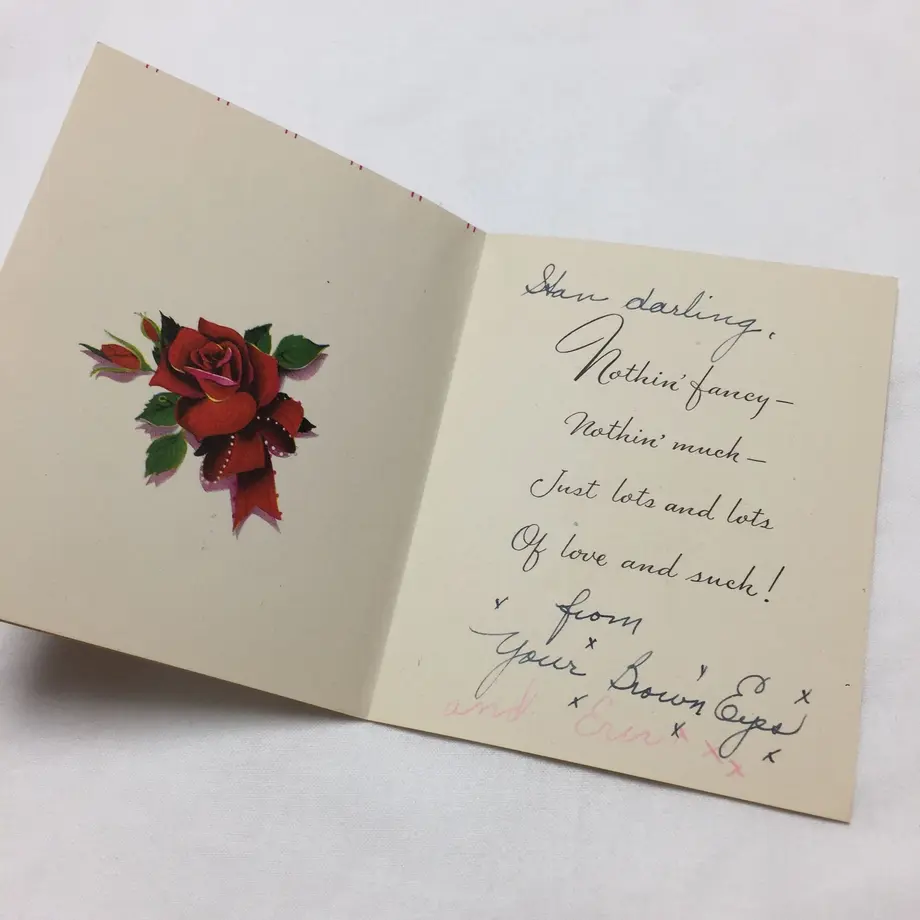 Stan darling,
Nothin' fancy—
Nothin' much—
Just lots and lots
Of love and such!
x from
Your x Brown x Eyes x
and x x x x x